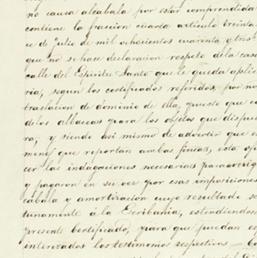 no causa alcabala por estar comprendida
contiene la fraccion cuarta artículo treinta
de Julio de mil ochocientos cuarenta y tres
que no se hace declaracion respeto dela casa
calle del Espíritu Santo que le queda aplica
ria, segun los certificados referidos por no
traslacion de dominio de ella, puesto que
delos albaceas para los objetos que dispu
ra, y siendo así mismo de advertir que
menes que reportan ambas fincas, esta ofi
cer las indagaciones necesarias para averig
y pagaron en su vez por esas imposiciones
cabala y amortizacion cuyo resultado se
tunamente á la Escribanía, estendiendose
presente certificado, para que puedan es
interesados los testimonios respectivos